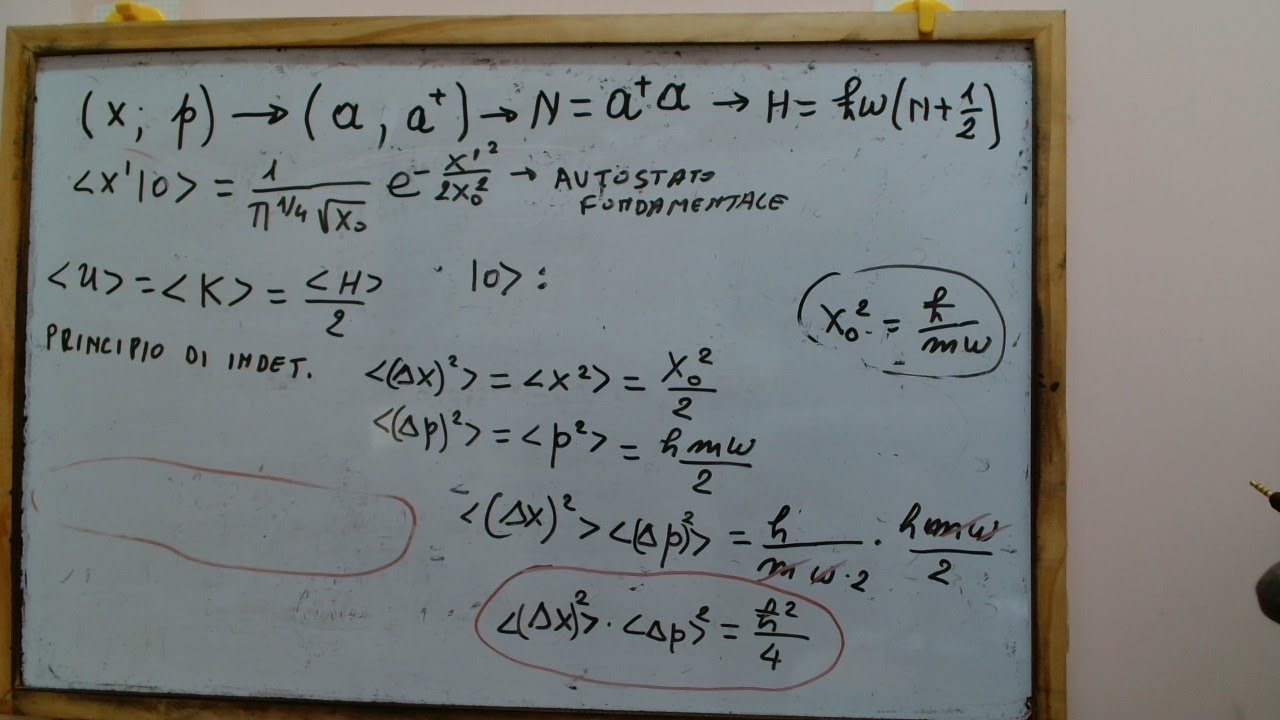 (x; p) → (a, a⁺) → N = a⁺a → H = ħω(N + 1/2)
<x'|0> = 1/(π^1/4 √x₀) e^(-x'²/2x₀²) → AUTOSTATO
FONDAMENTALE
<u> = <K> = <H>/2 |0> :
x₀² = ħ/mω
PRINCIPIO DI INDET.
<(Δx)²> = <x²> = x₀²/2
<(Δp)²> = <p²> = ħmω/2
<(Δx)²> <(Δp)²> = ħ/(mω·2) · ħmω/2
<(Δx)²> · <Δp>² = ħ²/4